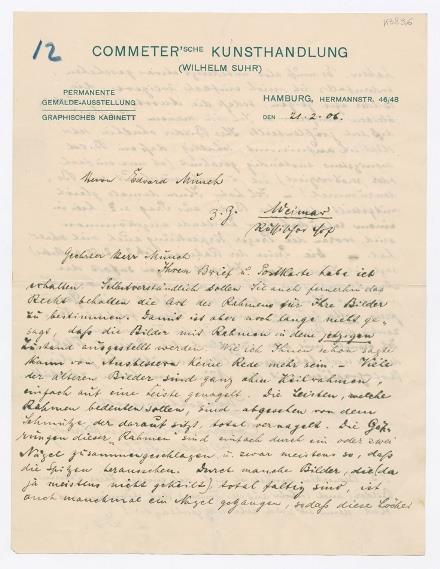 K3836
12
COMMETER'SCHE KUNSTHANDLUNG
(WILHELM SUHR)
PERMANENTE
GEMÄLDE-AUSSTELLUNG
GRAPHISCHES KABINETT
HAMBURG, HERMANNSTR. 46/48
DEN 21.2.06.
Herrn Edvard Munch
z. Z. Weimar
Geehrter Herr Munch
Ihren Brief u. Postkarte habe ich
erhalten Selbstverständlich sollen Sie auch fernerhin das
Recht behalten die Art des Rahmens für Ihre Bilder
zu bestimmen. Damit ist aber noch lange nicht ge-
sagt, daß die Bilder mit Rahmen in dem jetzigen
Zustand ausgestellt werden Wie ich Ihnen schon sagte
kann von Ausbessern keine Rede mehr sein. – Viele
der älteren Bilder sind ganz ohne Keilrahmen,
einfach auf eine Leiste genagelt. Die Leisten, welche
Rahmen bedeuten sollen, sind abgesehen von dem
Schmutze der darauf sitzt, total vernagelt. Die
dieser "Rahmen" sind einfach durch ein oder zwei
Nägel zusammengeschlagen u. zwar meistens so, daß
die Spitzen herausstehen. Durch manche Bilder, die (da
ja meistens nicht gekeilt) total faltig sind, ist
auch manchmal ein Nagel gegangen, sodaß diese Löcher